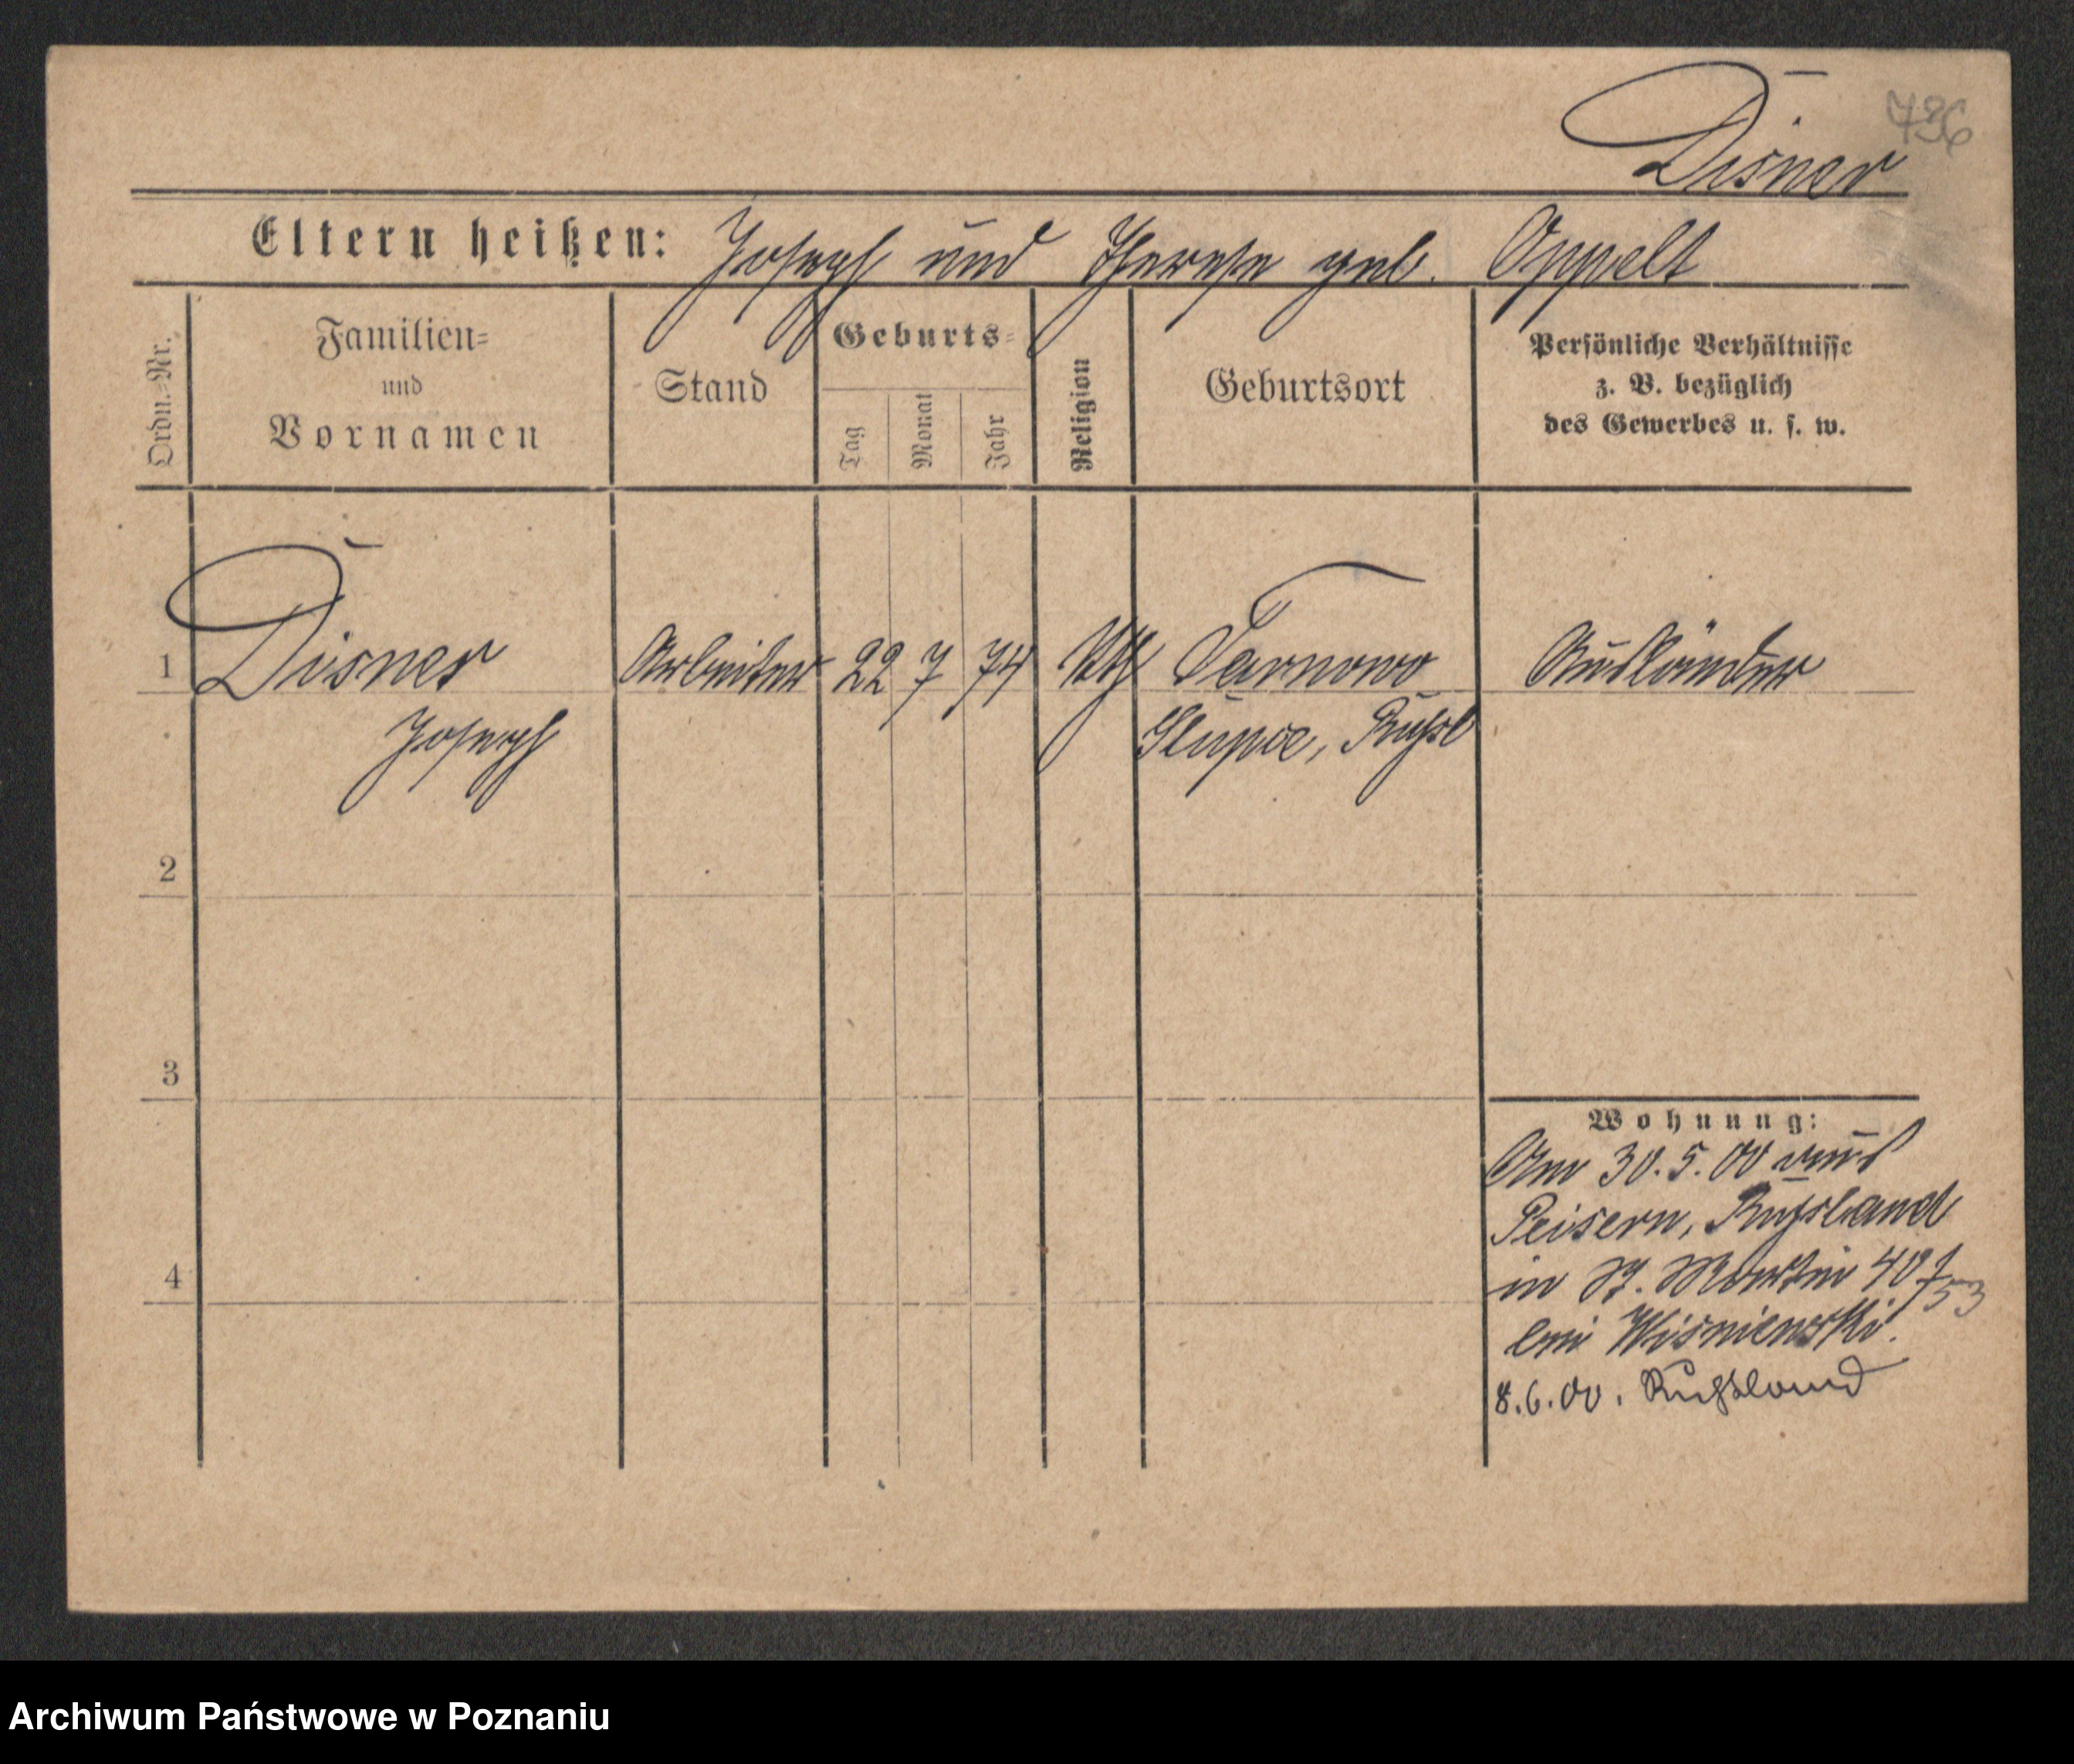 736
Disner
Eltern heißen: Joseph und Therese geb. Oppelt
Ordn.-Nr.
Familien-
und
Vornamen
Stand
Geburts-
Tag
Monat
Jahr
Religion
Geburtsort
Persönliche Verhältnisse
z. B. bezüglich
des Gewerbes u. s. w.
1 Disner Arbeiter 22 7 74 kth Tarnowo Ausländer
Joseph Slupce, Rußl
2
3
Wohnung:
Am 30.5.00 aus
Peisern, Russland
4 in St. Martin 40
53
bei Wisniewski.
8.6.00. Rußland
Archiwum Państwowe w Poznaniu